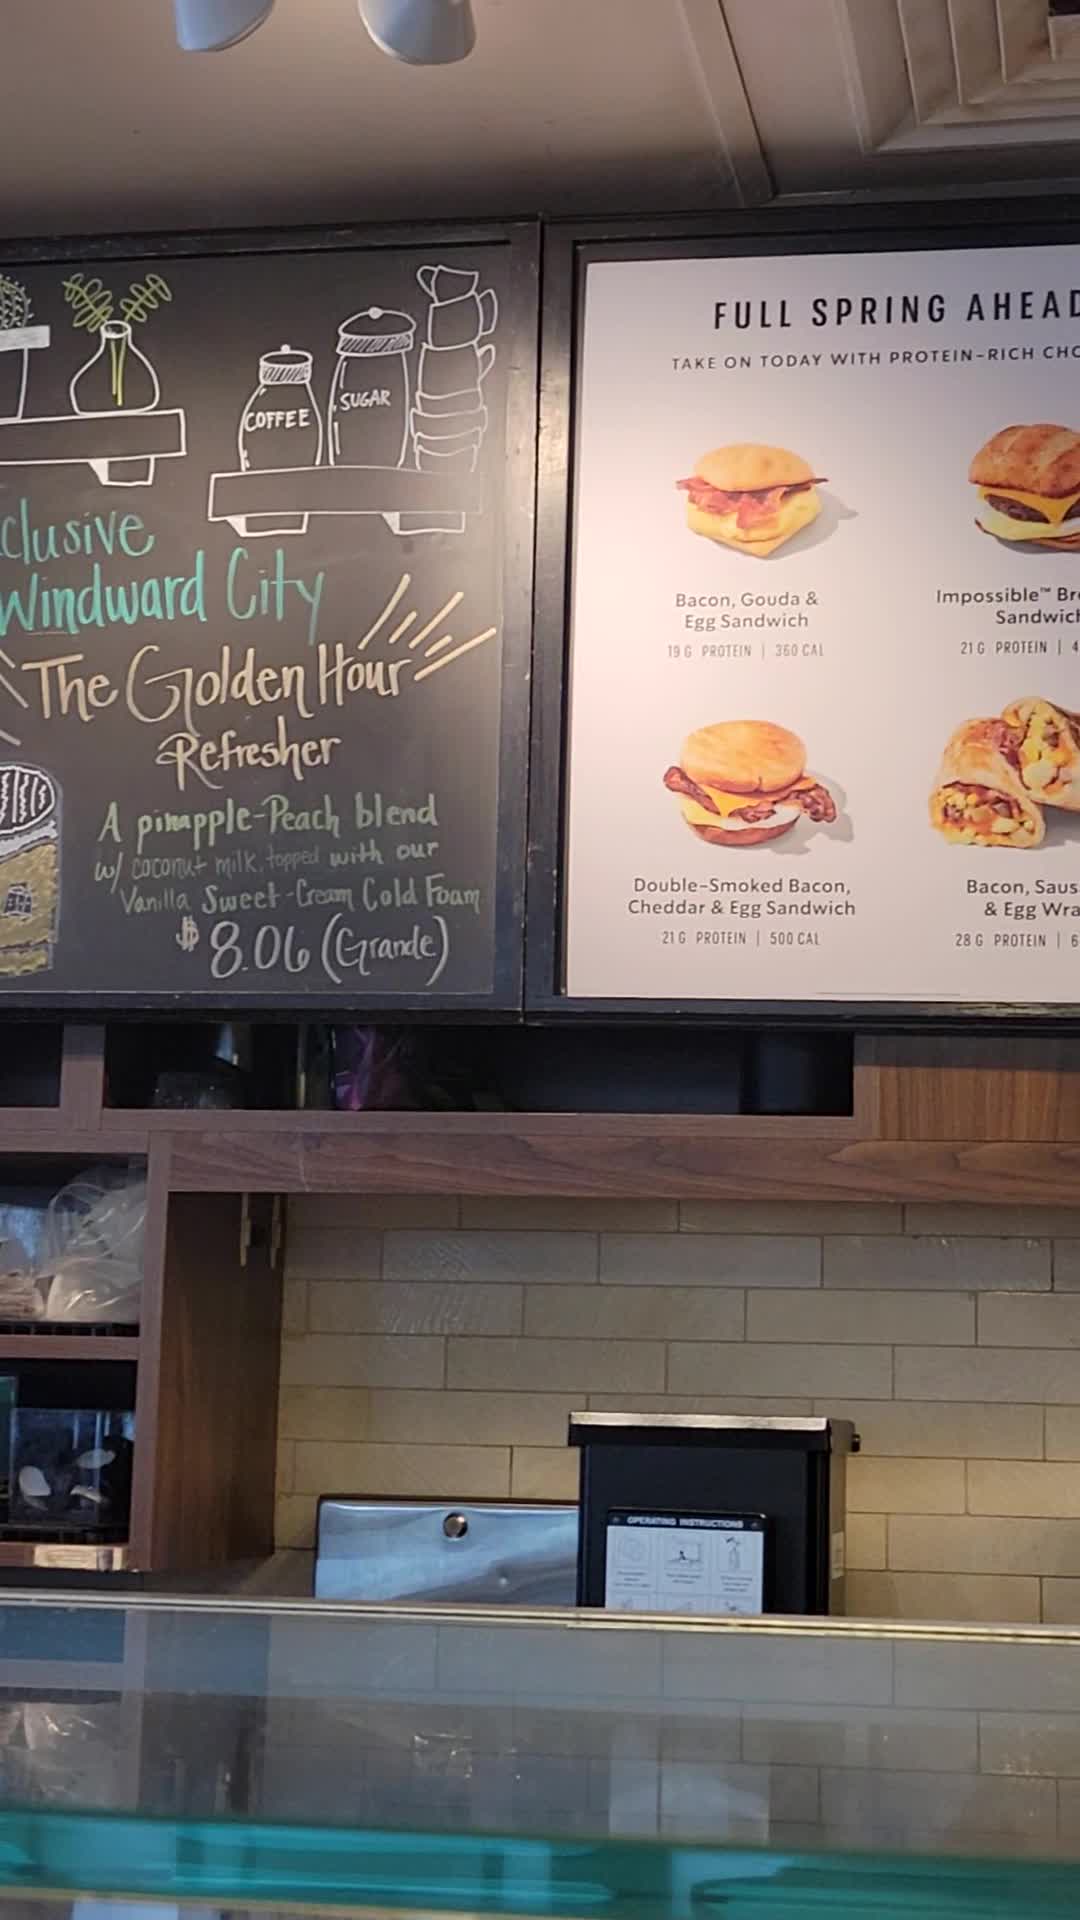 COFFEE
SUGAR
clusive
Windward City
The Golden Hour
Refresher
A pinapple-Peach blend
w/ coconut milk, topped with our
Vanilla Sweet-Cream Cold Foam
$8.06 (Grande)
FULL SPRING AHEAD
TAKE ON TODAY WITH PROTEIN-RICH CHO
Bacon, Gouda &
Egg Sandwich
19 G PROTEIN | 360 CAL
Impossible™ Bre
Sandwich
21 G PROTEIN | 4
Double-Smoked Bacon,
Cheddar & Egg Sandwich
21 G PROTEIN | 500 CAL
Bacon, Saus
& Egg Wra
28 G PROTEIN | 6
OPERATING INSTRUCTIONS